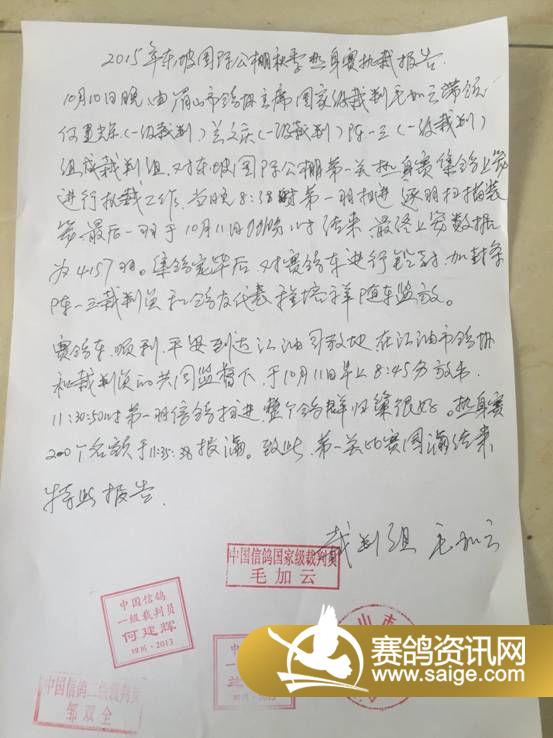 2015年东坡国际公棚秋季热身赛执裁报告
10月10日晚,由眉山市鸽协主席国家级裁判毛加云带领
何建(一级裁判)兰文庆(一级裁判)陈一三(一级裁判)
组成裁判组,对东坡国际公棚第一关热身赛集鸽上笼
进行执裁工作,当晚8:38时第一羽扫进,逐羽扫描装
笼,最后一羽于10月11日时结束,最终上笼数据
为4157羽。集鸽完毕后,对赛鸽车进行铅封,加封条
陈一三裁判员和鸽友代表程培祥随车监放。
赛鸽车顺利、平安到达江油司放地,在江油市鸽协
和裁判员的共同监督下,于10月11日早上8:45分放飞,
11:30:50时第一羽信鸽扫进,整个鸽群归巢很好。热身赛
200个名额于11:35:38报满。致此,第一关比赛圆满结束,
特此报告
裁判组 毛加云
中国信鸽国家级裁判员
毛加云
中国信鸽
一级裁判员
何建辉
四川·2013
中国信鸽
一级裁判员
四川·2013
中国信鸽二级裁判员
邹双全
山市
赛鸽资讯网
www.saige.com